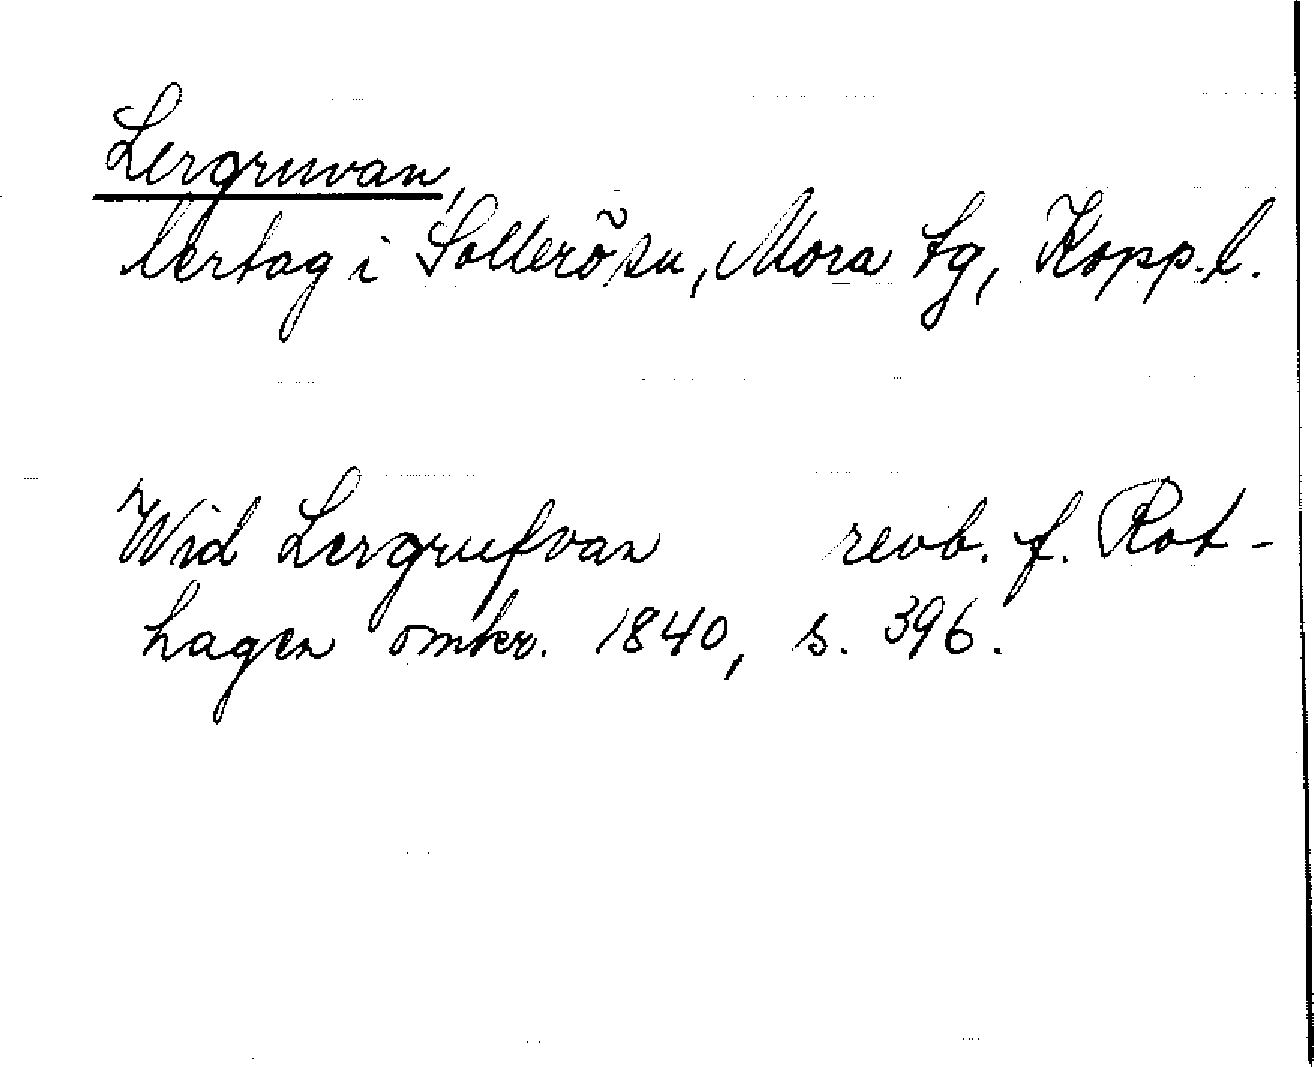 Lergruvan,
lertag i Sollerö sn, Mora tg, Kopp. l.
Wid Lergrufvan revb. f. Rot-
hagen omkr. 1840, s. 396.